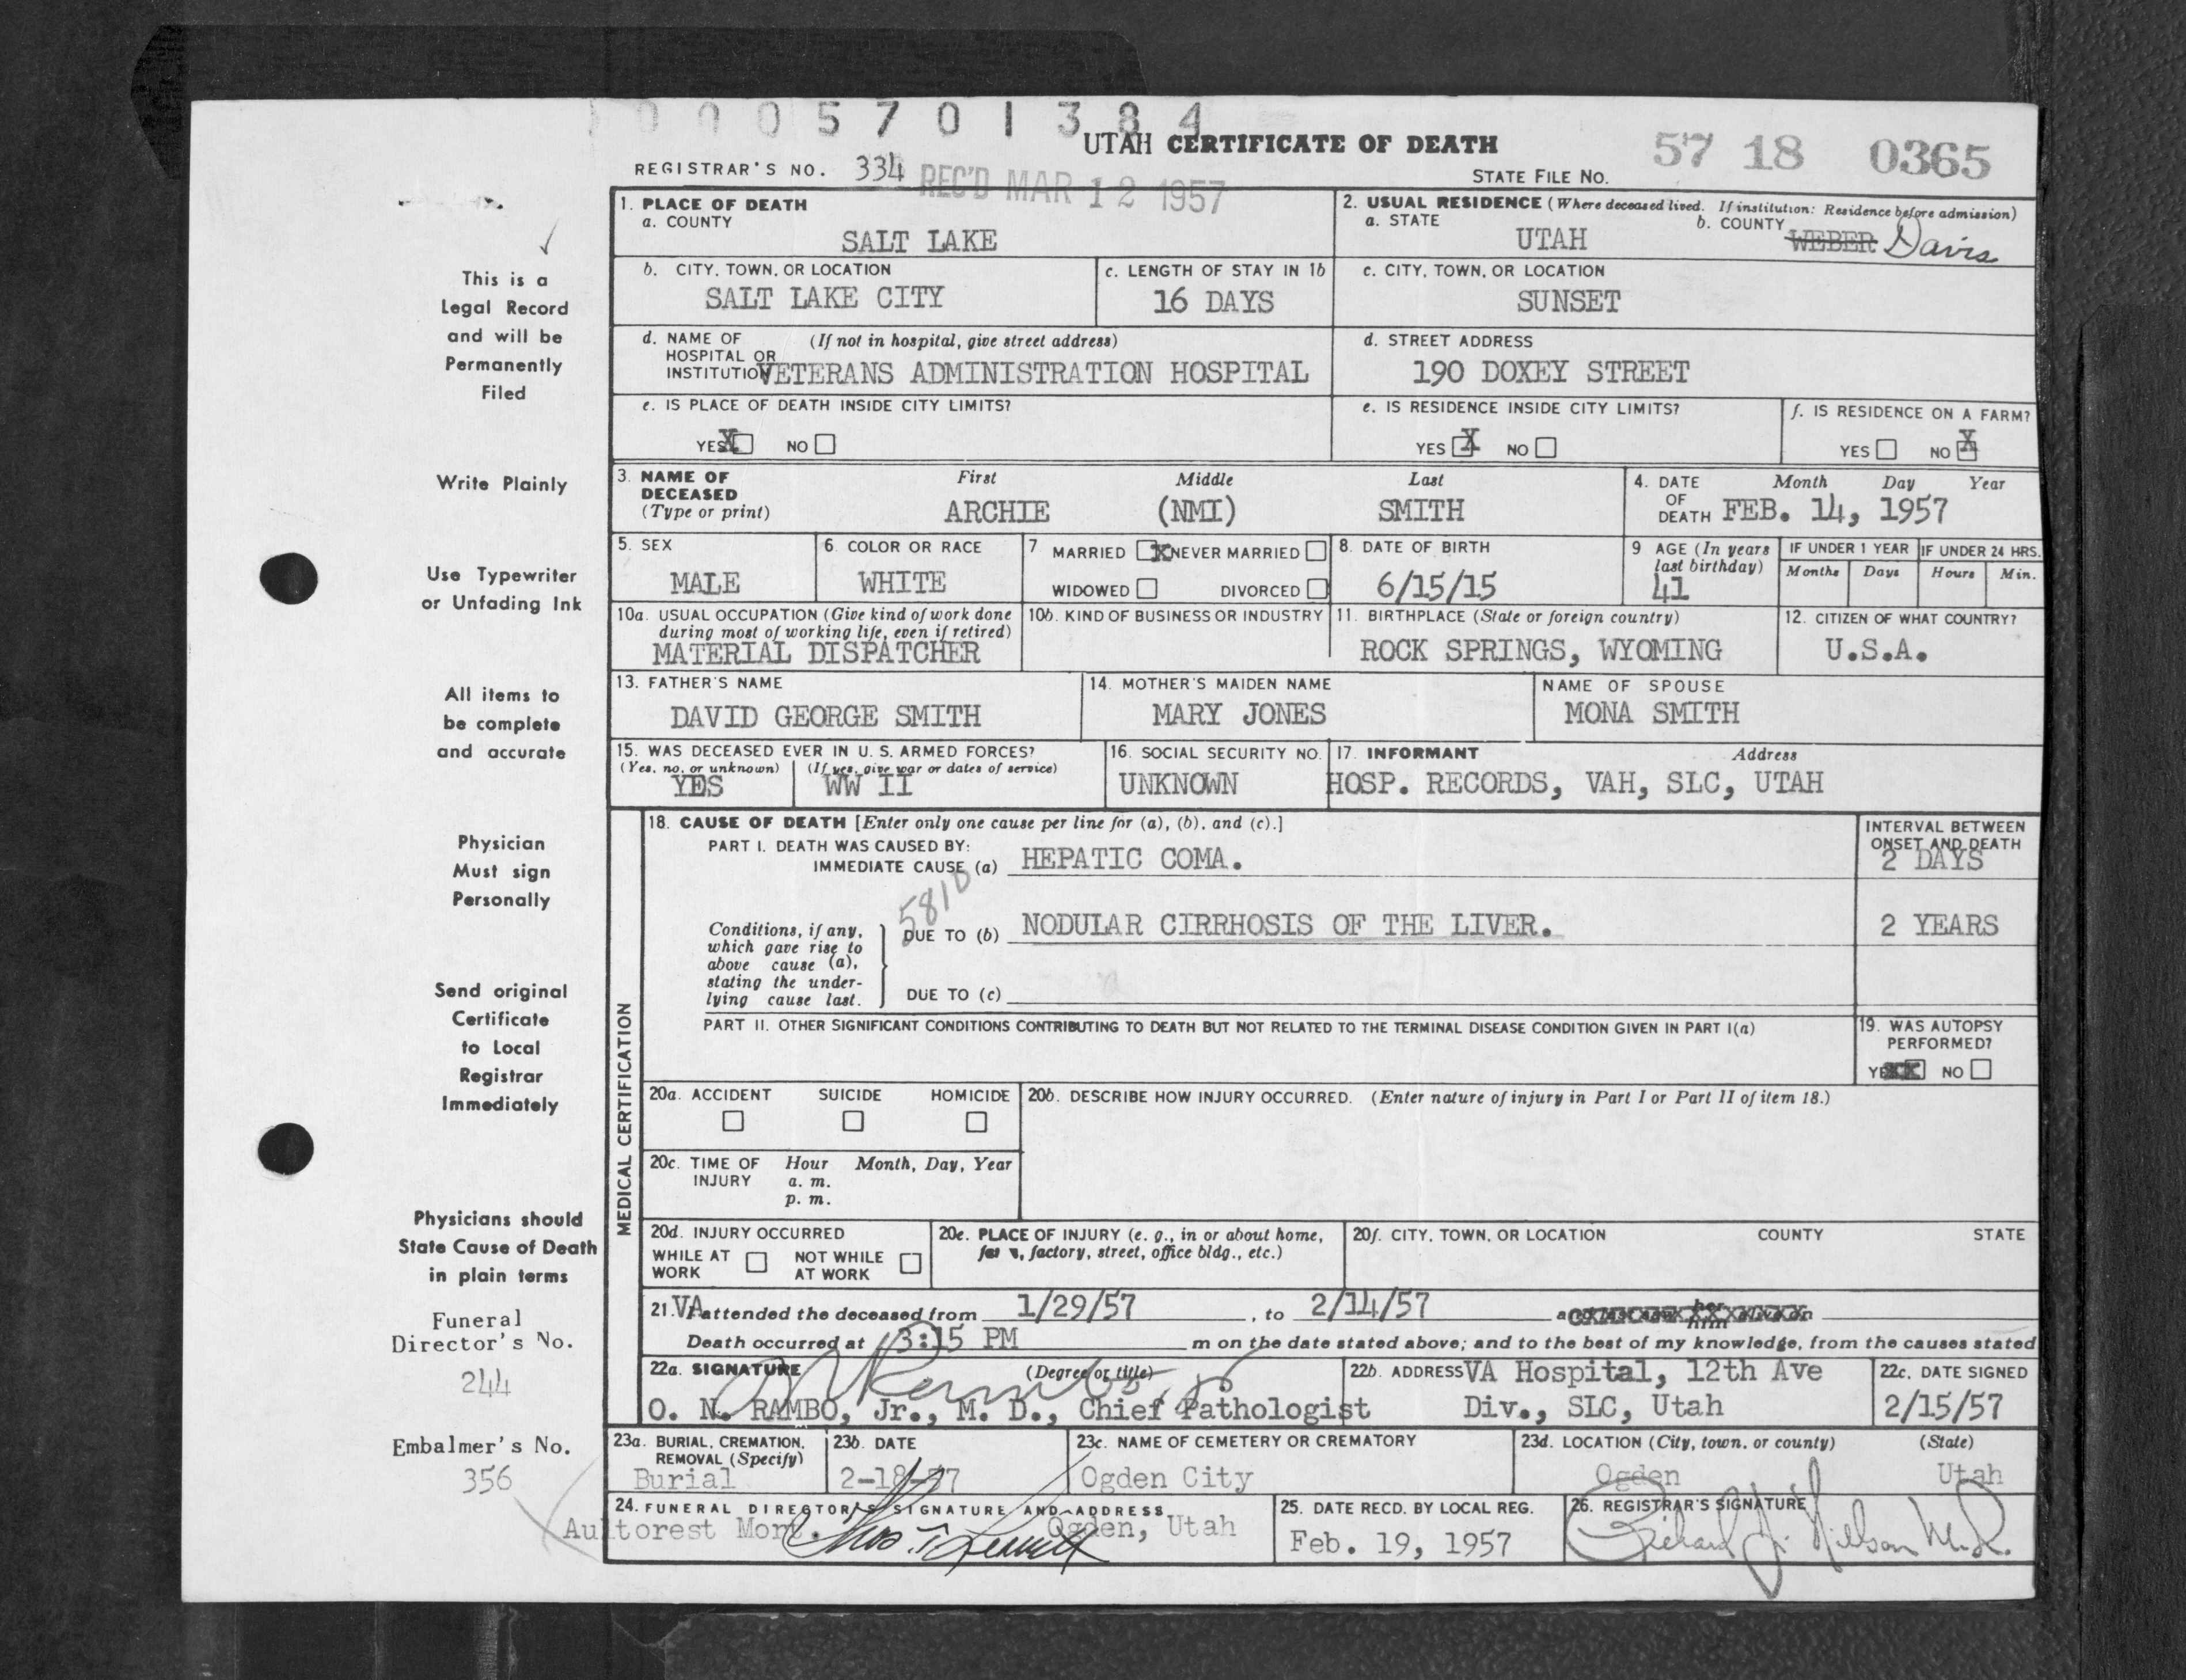 0005701384
UTAH CERTIFICATE OF DEATH
57 18 0365
REGISTRAR'S NO. 334
REC'D MAR 12 1957
STATE FILE NO.
1. PLACE OF DEATH
a. COUNTY
SALT LAKE
2. USUAL RESIDENCE (Where deceased lived. If institution: Residence before admission)
a. STATE
UTAH
b. COUNTY
WEBER Davis
b. CITY, TOWN, OR LOCATION
SALT LAKE CITY
c. LENGTH OF STAY IN 1b
16 DAYS
c. CITY, TOWN, OR LOCATION
SUNSET
d. NAME OF (If not in hospital, give street address)
HOSPITAL OR
INSTITUTION VETERANS ADMINISTRATION HOSPITAL
d. STREET ADDRESS
190 DOXEY STREET
e. IS PLACE OF DEATH INSIDE CITY LIMITS?
YES X NO
e. IS RESIDENCE INSIDE CITY LIMITS?
YES X NO
f. IS RESIDENCE ON A FARM?
YES NO X
3. NAME OF
DECEASED
(Type or print)
First Middle Last
ARCHIE (NMI) SMITH
4. DATE
OF
DEATH
Month Day Year
FEB. 14, 1957
5. SEX
MALE
6. COLOR OR RACE
WHITE
7 MARRIED X NEVER MARRIED
WIDOWED DIVORCED
8. DATE OF BIRTH
6/15/15
9 AGE (In years
last birthday)
41
IF UNDER 1 YEAR
Months Days
IF UNDER 24 HRS.
Hours Min.
10a. USUAL OCCUPATION (Give kind of work done
during most of working life, even if retired)
MATERIAL DISPATCHER
10b. KIND OF BUSINESS OR INDUSTRY
11. BIRTHPLACE (State or foreign country)
ROCK SPRINGS, WYOMING
12. CITIZEN OF WHAT COUNTRY?
U.S.A.
13. FATHER'S NAME
DAVID GEORGE SMITH
14. MOTHER'S MAIDEN NAME
MARY JONES
NAME OF SPOUSE
MONA SMITH
15. WAS DECEASED EVER IN U. S. ARMED FORCES?
(Yes, no, or unknown) (If yes, give war or dates of service)
YES WW II
16. SOCIAL SECURITY NO.
UNKNOWN
17. INFORMANT Address
HOSP. RECORDS, VAH, SLC, UTAH
MEDICAL CERTIFICATION
18. CAUSE OF DEATH [Enter only one cause per line for (a), (b), and (c).]
PART I. DEATH WAS CAUSED BY:
IMMEDIATE CAUSE (a) HEPATIC COMA.
INTERVAL BETWEEN
ONSET AND DEATH
2 DAYS
5810
Conditions, if any,
which gave rise to
above cause (a),
stating the under-
lying cause last.
DUE TO (b) NODULAR CIRRHOSIS OF THE LIVER.
2 YEARS
DUE TO (c)
PART II. OTHER SIGNIFICANT CONDITIONS CONTRIBUTING TO DEATH BUT NOT RELATED TO THE TERMINAL DISEASE CONDITION GIVEN IN PART I(a)
19. WAS AUTOPSY
PERFORMED?
YES XX NO
20a. ACCIDENT SUICIDE HOMICIDE
20b. DESCRIBE HOW INJURY OCCURRED. (Enter nature of injury in Part I or Part II of item 18.)
20c. TIME OF
INJURY
Hour Month, Day, Year
a. m.
p. m.
20d. INJURY OCCURRED
WHILE AT
WORK
NOT WHILE
AT WORK
20e. PLACE OF INJURY (e. g., in or about home,
factory, street, office bldg., etc.)
20f. CITY, TOWN, OR LOCATION COUNTY STATE
21. VA attended the deceased from 1/29/57, to 2/14/57
Death occurred at 3:15 PM m on the date stated above; and to the best of my knowledge, from the causes stated
22a. SIGNATURE (Degree or title)
O. N. RAMBO, Jr., M. D., Chief Pathologist
22b. ADDRESS VA Hospital, 12th Ave
Div., SLC, Utah
22c. DATE SIGNED
2/15/57
23a. BURIAL, CREMATION,
REMOVAL (Specify)
Burial
23b. DATE
2-18-57
23c. NAME OF CEMETERY OR CREMATORY
Ogden City
23d. LOCATION (City, town, or county) (State)
Ogden Utah
24. FUNERAL DIRECTOR'S SIGNATURE AND ADDRESS
Aultorest Mort. Ogden, Utah
25. DATE RECD. BY LOCAL REG.
Feb. 19, 1957
26. REGISTRAR'S SIGNATURE
Richard J. Nilson M.D.
This is a
Legal Record
and will be
Permanently
Filed
Write Plainly
Use Typewriter
or Unfading Ink
All items to
be complete
and accurate
Physician
Must sign
Personally
Send original
Certificate
to Local
Registrar
Immediately
Physicians should
State Cause of Death
in plain terms
Funeral
Director's No.
244
Embalmer's No.
356